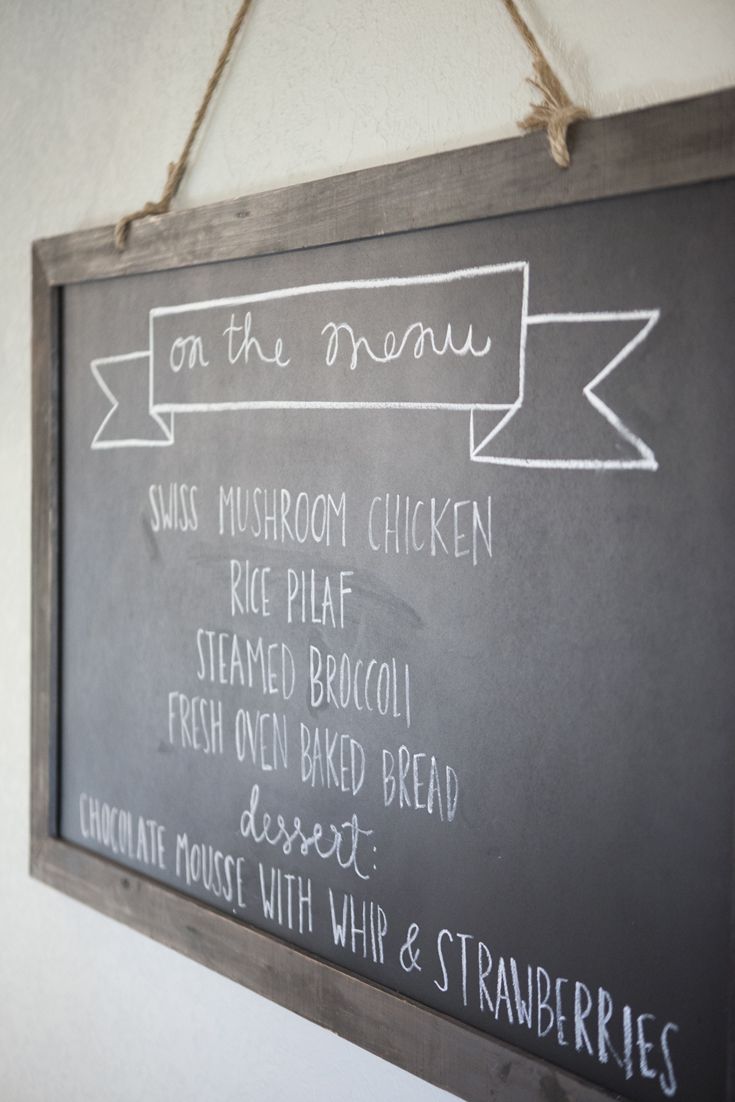 on the menu
SWISS MUSHROOM CHICKEN
RICE PILAF
STEAMED BROCCOLI
FRESH OVEN BAKED BREAD
dessert:
CHOCOLATE MOUSSE WITH WHIP & STRAWBERRIES